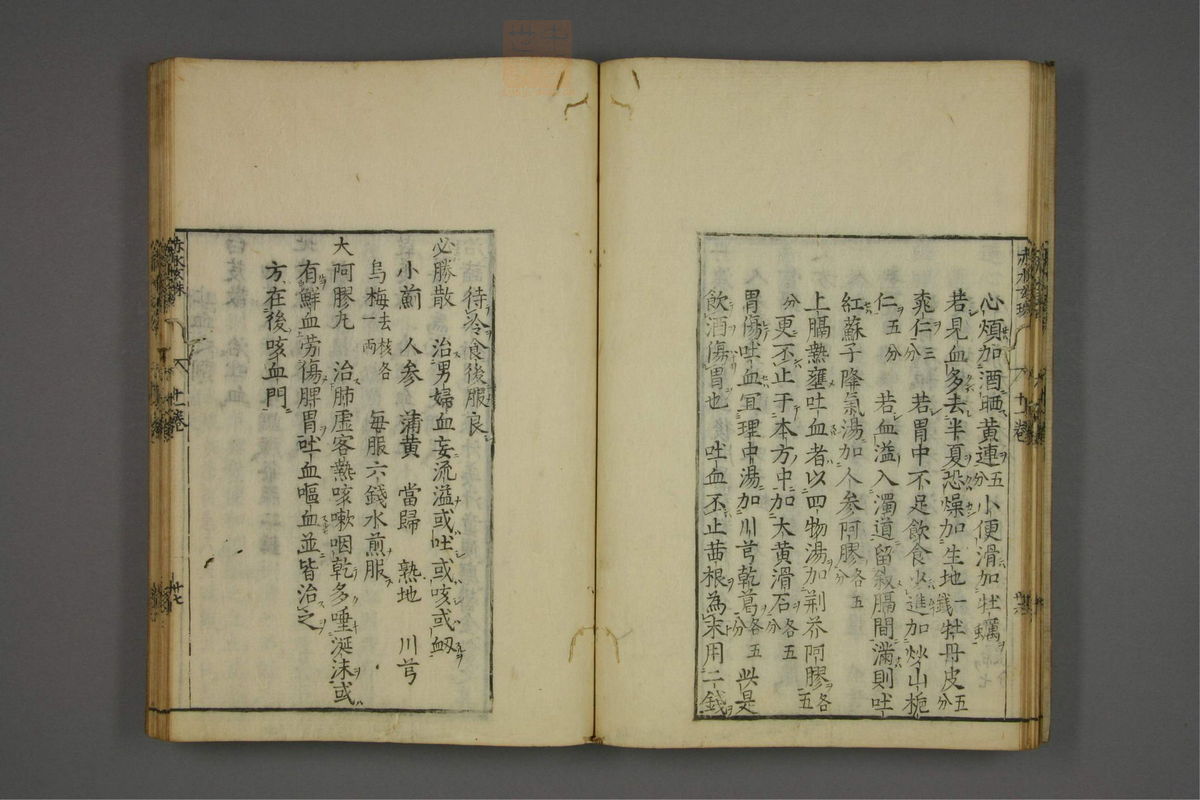 心煩加酒晒黃連五分小便滑加牡蠣
若見血多去半夏恐燥加生地一錢牡丹皮五分
桃仁三分若胃中不足飲食少進加炒山梔
仁五分　若血溢入濁道留聚膈間滿則吐
紅蘇子降氣湯加人參阿膠各五分
上膈熱壅吐血者以四物湯加荊芥阿膠各五
分更不止于本方中加大黃滑石各五分
胃傷吐血宜理中湯加川芎乾葛各五分此是
飲酒傷胃也　吐血不止茜根為末用二錢
待冷食後服良
必勝散　治男婦血妄流溢或吐或咳或衂
小薊　人參　蒲黃　當歸　熟地　川芎
烏梅去核各一兩　每服六錢水煎服
大阿膠丸　治肺虛客熱咳嗽咽乾多唾涎沫或
有鮮血勞傷脾胃吐血嘔血並皆治之
方在後咳血門
赤水玄珠
十一卷
卅七